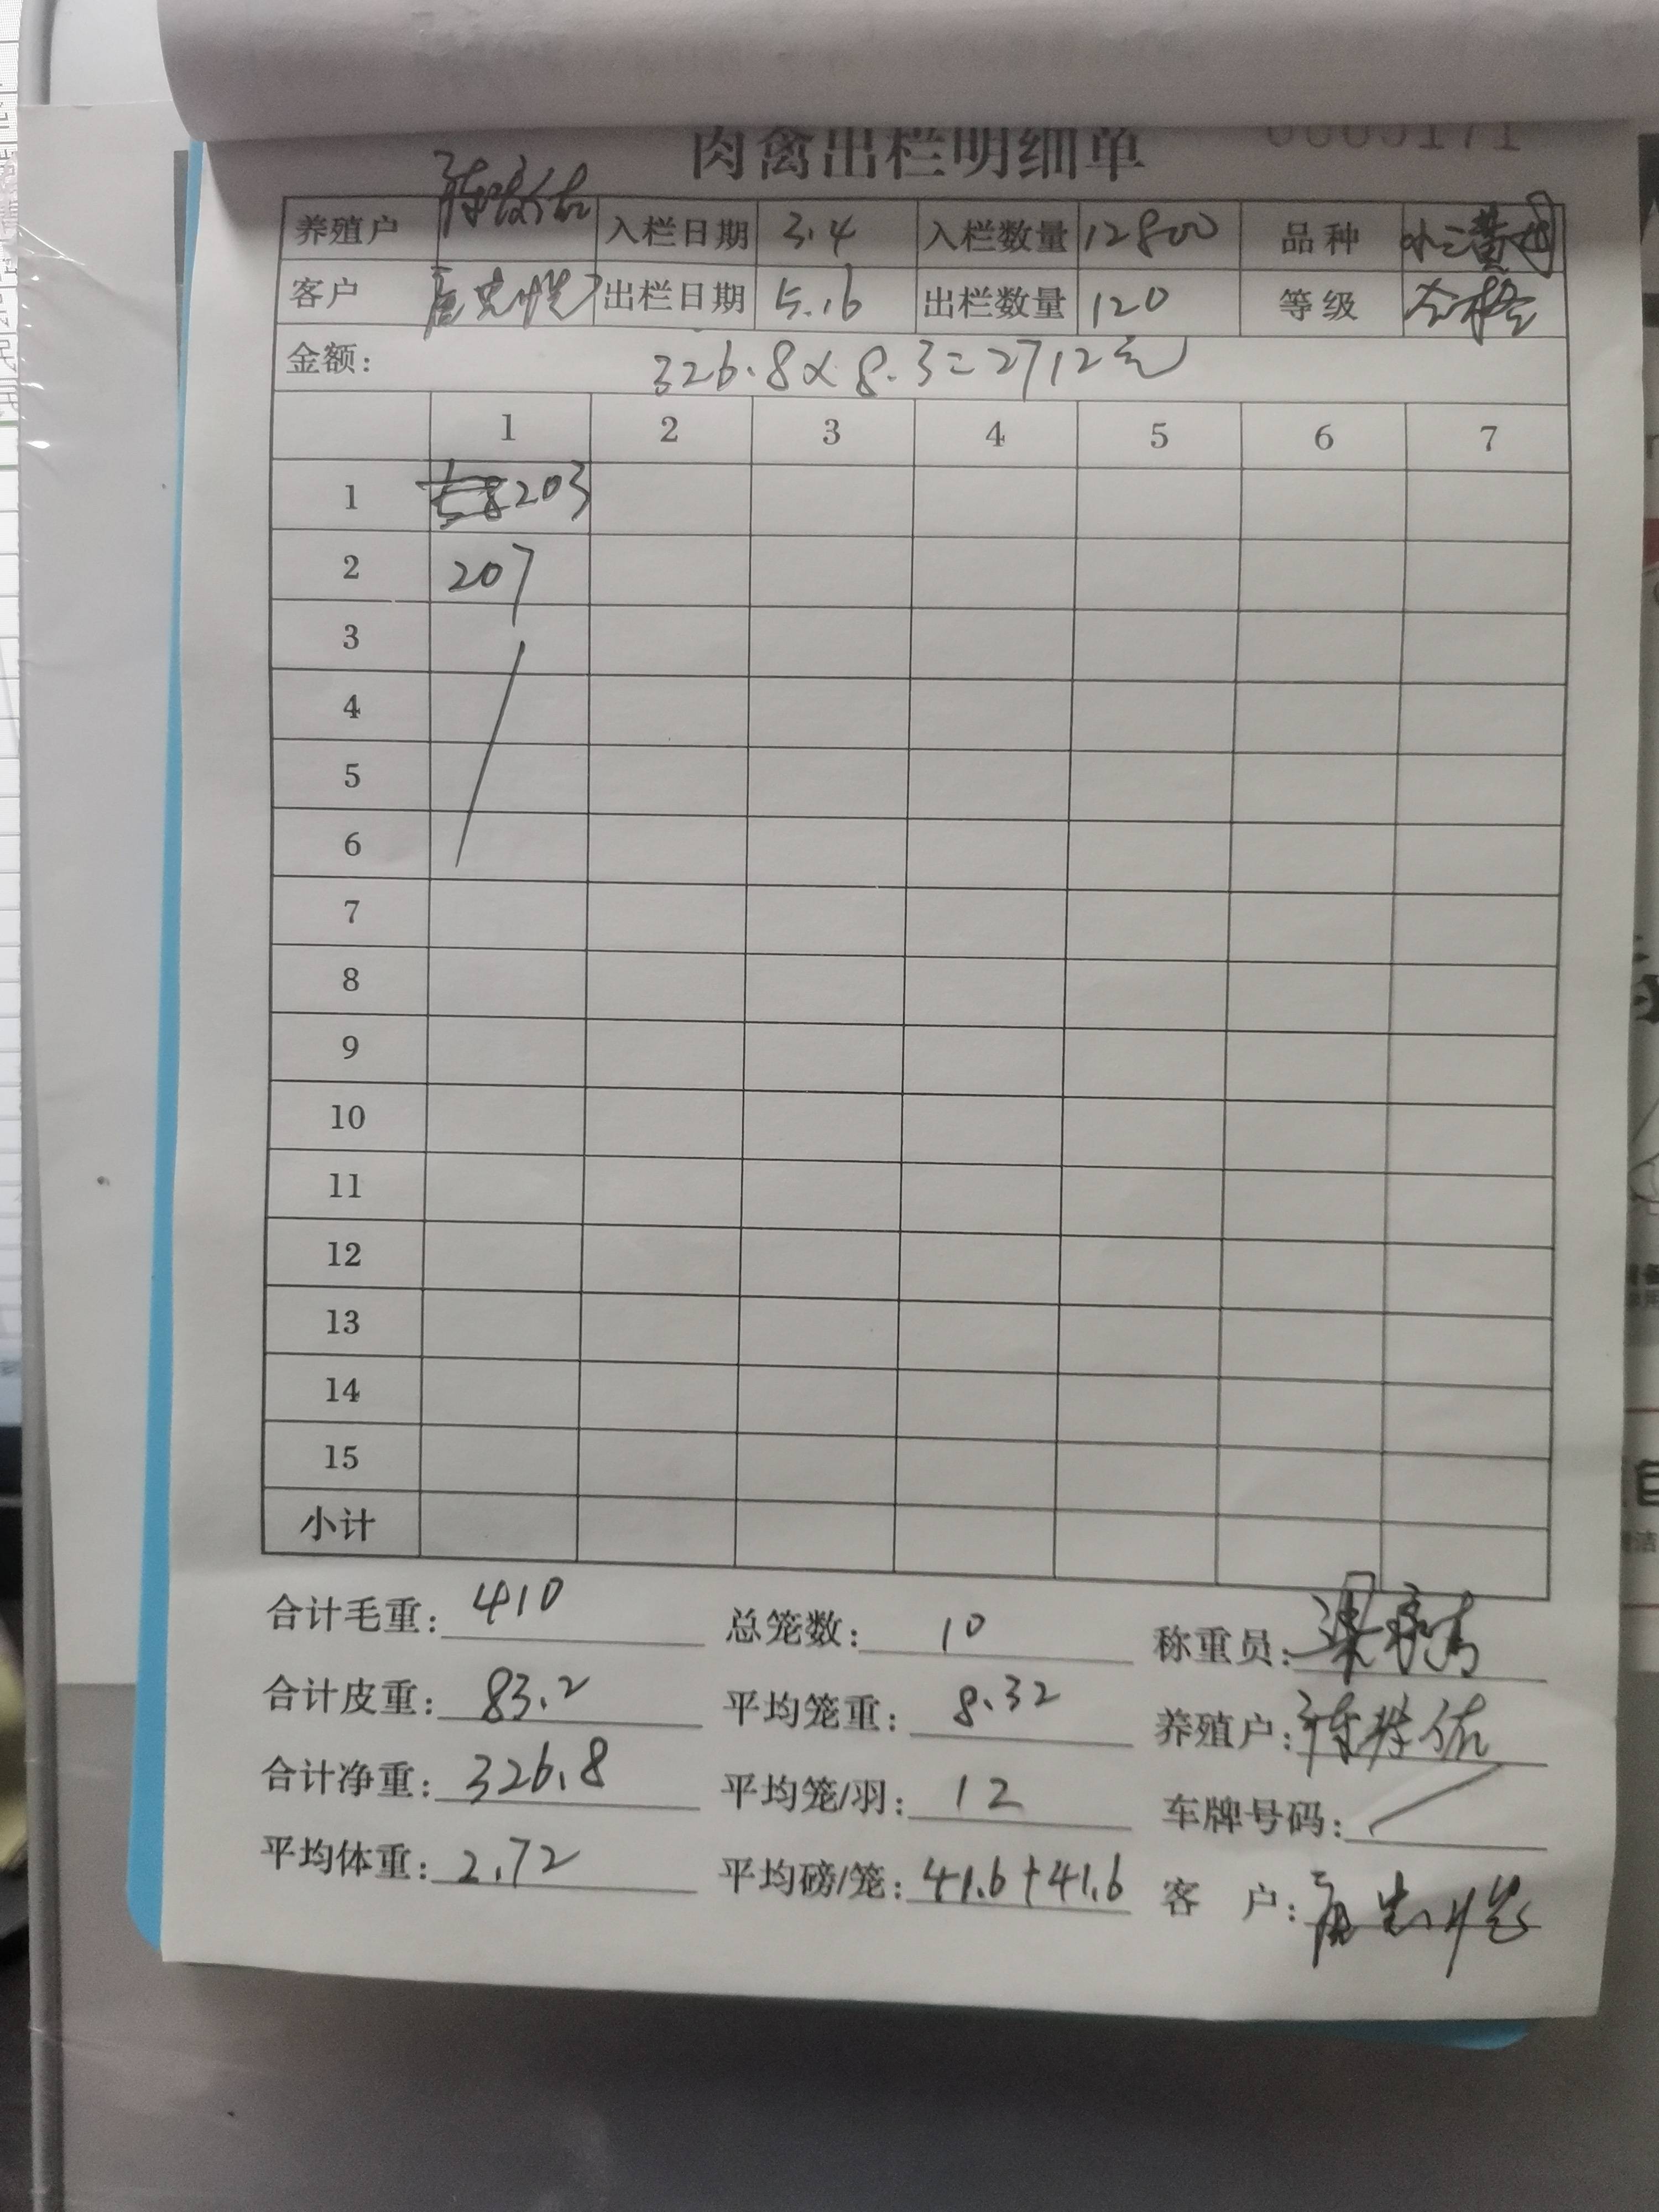 肉禽出栏明细单 0005171
养殖户 入栏日期 3.4 入栏数量 12800 品种
客户 出栏日期 5.16 出栏数量 120 等级 合格
金额: 326.8×8.3=2712元
1 2 3 4 5 6 7
1 203
2 207
3
4
5
6
7
8
9
10
11
12
13
14
15
小计
合计毛重: 410 总笼数: 10 称重员:
合计皮重: 83.2 平均笼重: 8.32 养殖户:
合计净重: 326.8 平均笼/羽: 12 车牌号码:
平均体重: 2.72 平均磅/笼: 41.6+41.6 客 户: